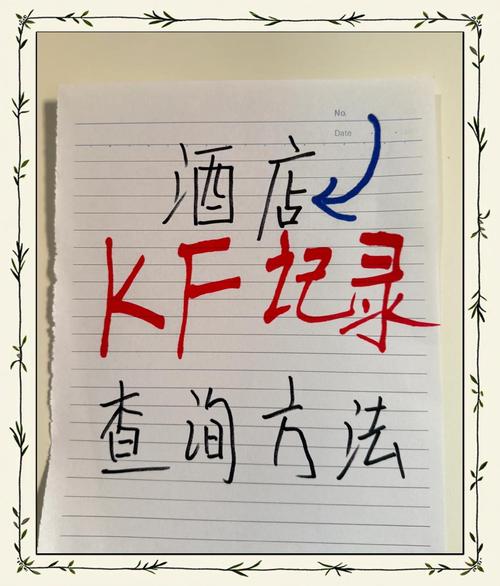 No.
Date
酒店
KF记录
查询方法